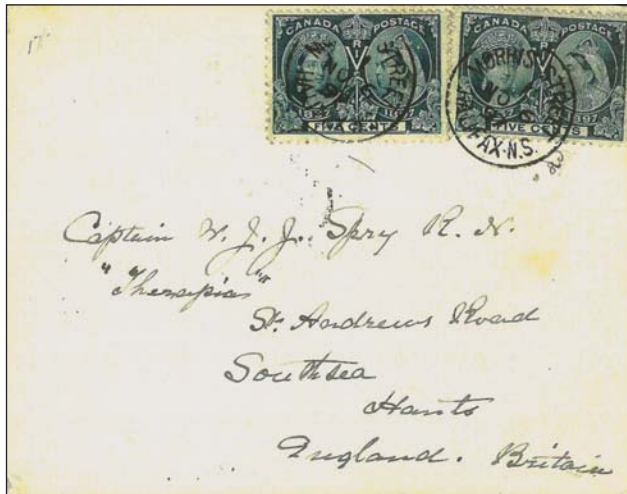 17
CANADA POSTAGE
V R I
1837 1897
FIVE CENTS
CANADA POSTAGE
V R I
1897
FIVE CENTS
MORRIS STREET
NO 6
HALIFAX·N.S.
Captain W. J. J. Spry R. N.
"Therapia"
St. Andrews Road
Southsea
Hants
England. Britain